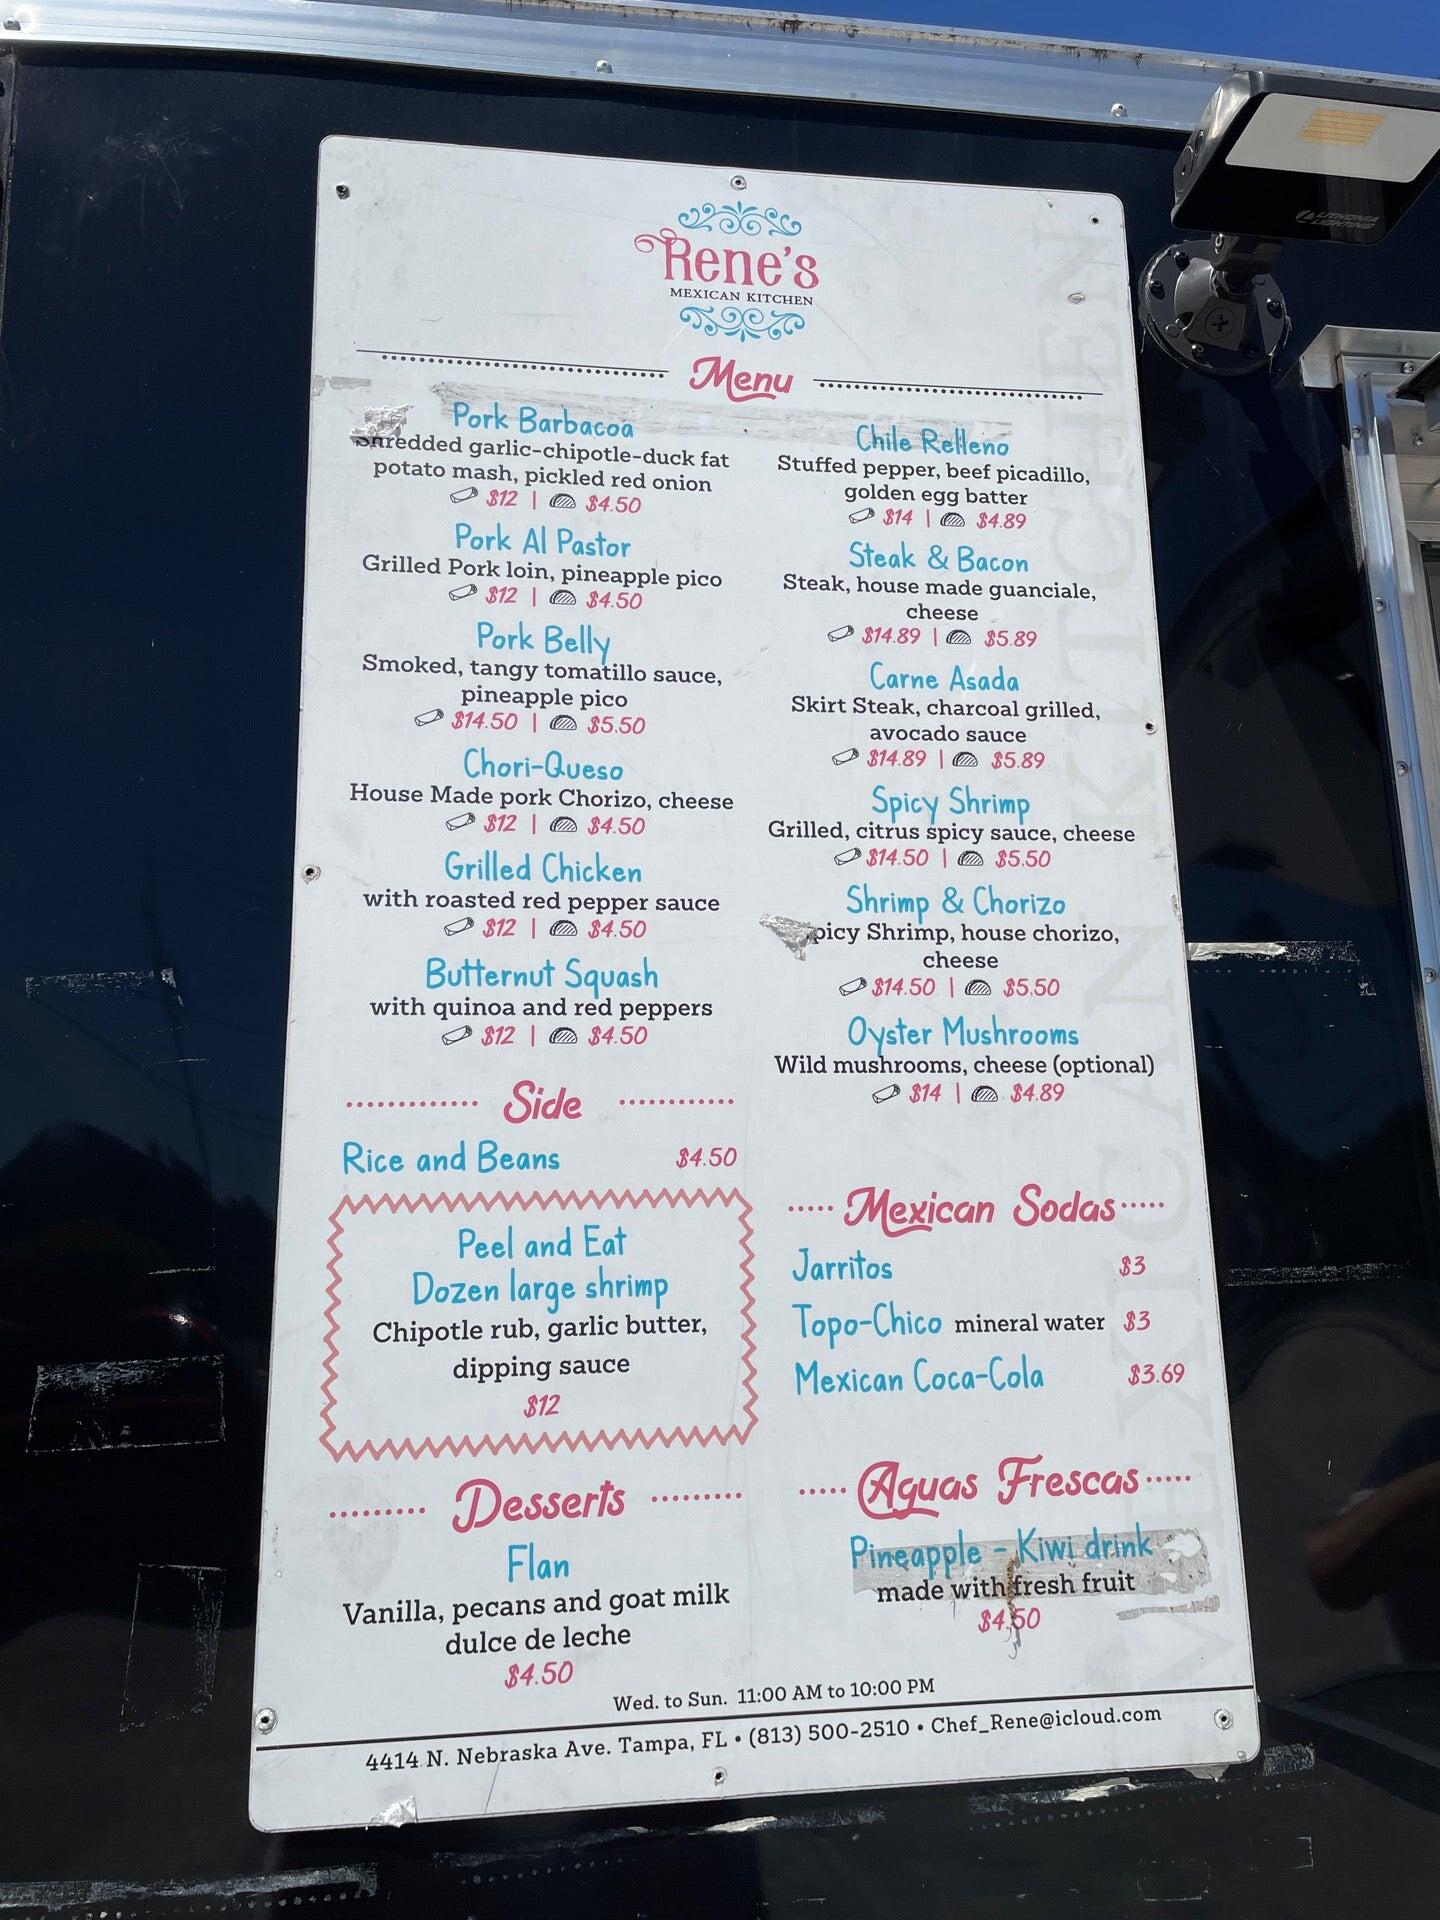 Rene's
MEXICAN KITCHEN
Menu
Pork Barbacoa
Shredded garlic-chipotle-duck fat
potato mash, pickled red onion
$12 | $4.50
Pork Al Pastor
Grilled Pork loin, pineapple pico
$12 | $4.50
Pork Belly
Smoked, tangy tomatillo sauce,
pineapple pico
$14.50 | $5.50
Chori-Queso
House Made pork Chorizo, cheese
$12 | $4.50
Grilled Chicken
with roasted red pepper sauce
$12 | $4.50
Butternut Squash
with quinoa and red peppers
$12 | $4.50
Side
Rice and Beans $4.50
Peel and Eat
Dozen large shrimp
Chipotle rub, garlic butter,
dipping sauce
$12
Desserts
Flan
Vanilla, pecans and goat milk
dulce de leche
$4.50
Chile Relleno
Stuffed pepper, beef picadillo,
golden egg batter
$14 | $4.89
Steak & Bacon
Steak, house made guanciale,
cheese
$14.89 | $5.89
Carne Asada
Skirt Steak, charcoal grilled,
avocado sauce
$14.89 | $5.89
Spicy Shrimp
Grilled, citrus spicy sauce, cheese
$14.50 | $5.50
Shrimp & Chorizo
Spicy Shrimp, house chorizo,
cheese
$14.50 | $5.50
Oyster Mushrooms
Wild mushrooms, cheese (optional)
$14 | $4.89
Mexican Sodas
Jarritos $3
Topo-Chico mineral water $3
Mexican Coca-Cola $3.69
Aguas Frescas
Pineapple - Kiwi drink
made with fresh fruit
$4.50
Wed. to Sun. 11:00 AM to 10:00 PM
4414 N. Nebraska Ave. Tampa, FL • (813) 500-2510 • Chef_Rene@icloud.com
MEXICAN KITCHEN
LITHONIA
LIGHTING